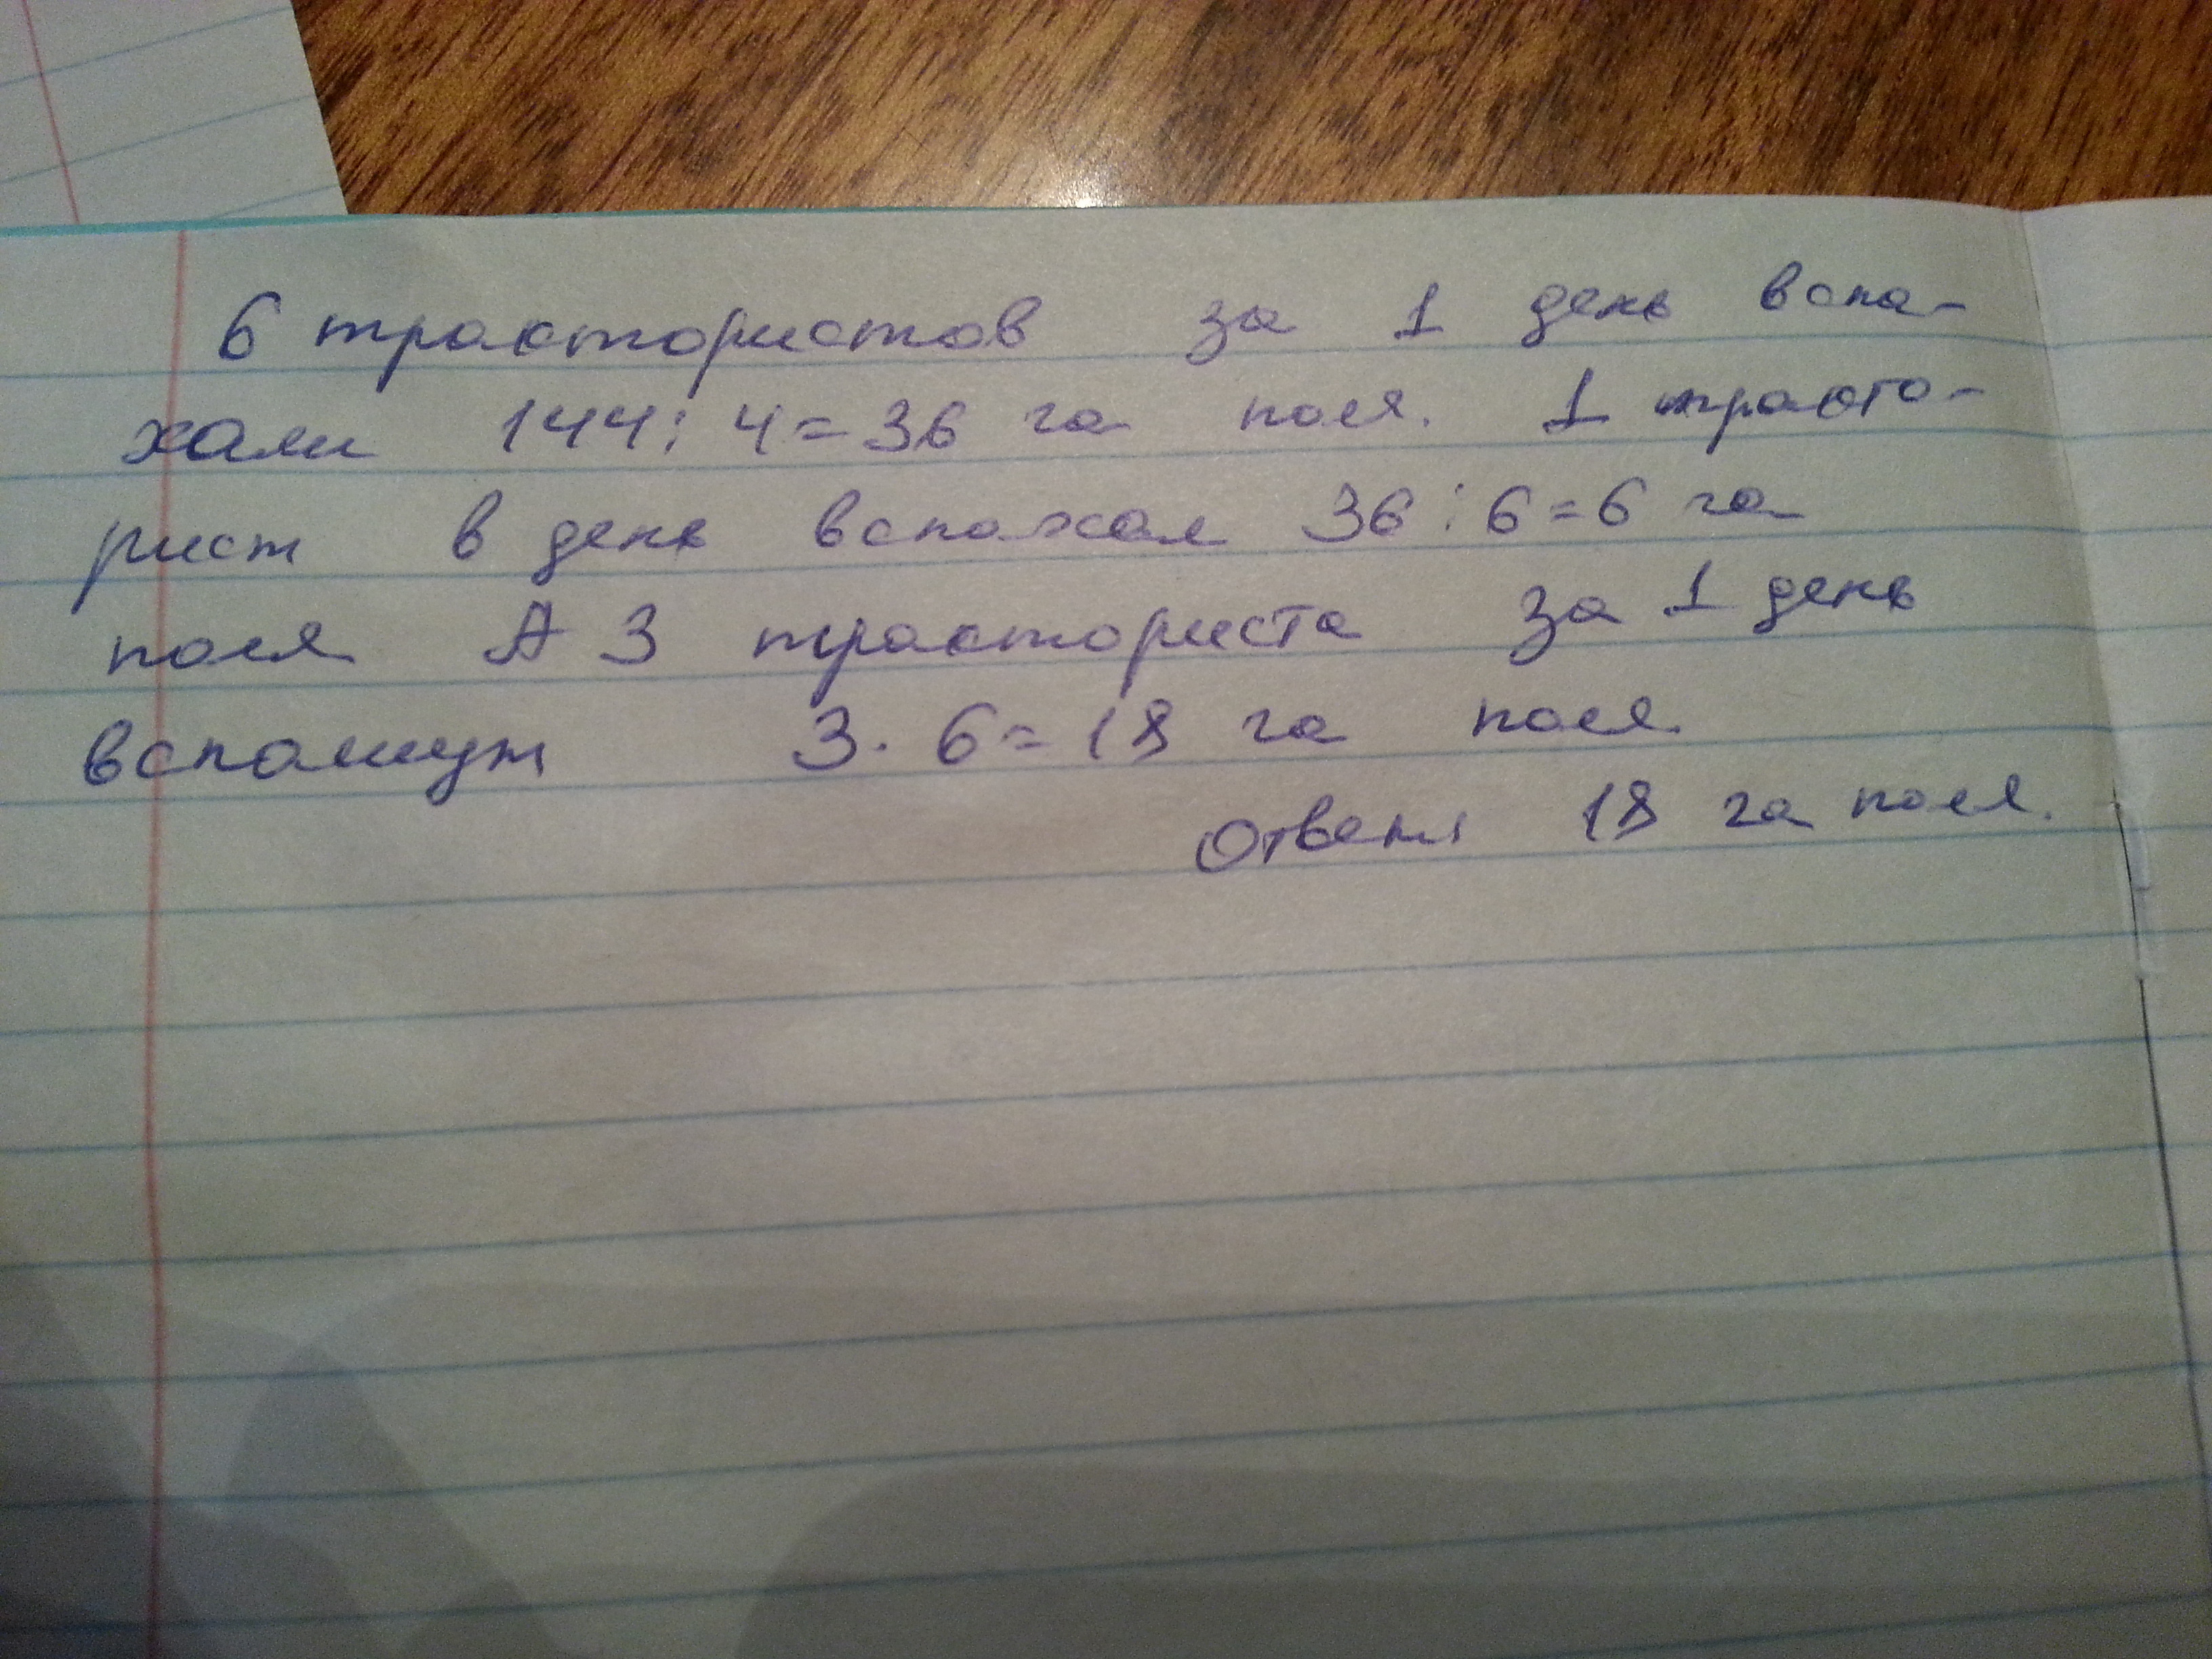 6 трактористов за 1 день вспа-
хали 144 : 4 = 36 га поля. 1 тракто-
рист в день вспахал 36 : 6 = 6 га
поля А 3 тракториста за 1 день
вспашут 3 · 6 = 18 га поля
Ответ: 18 га поля.